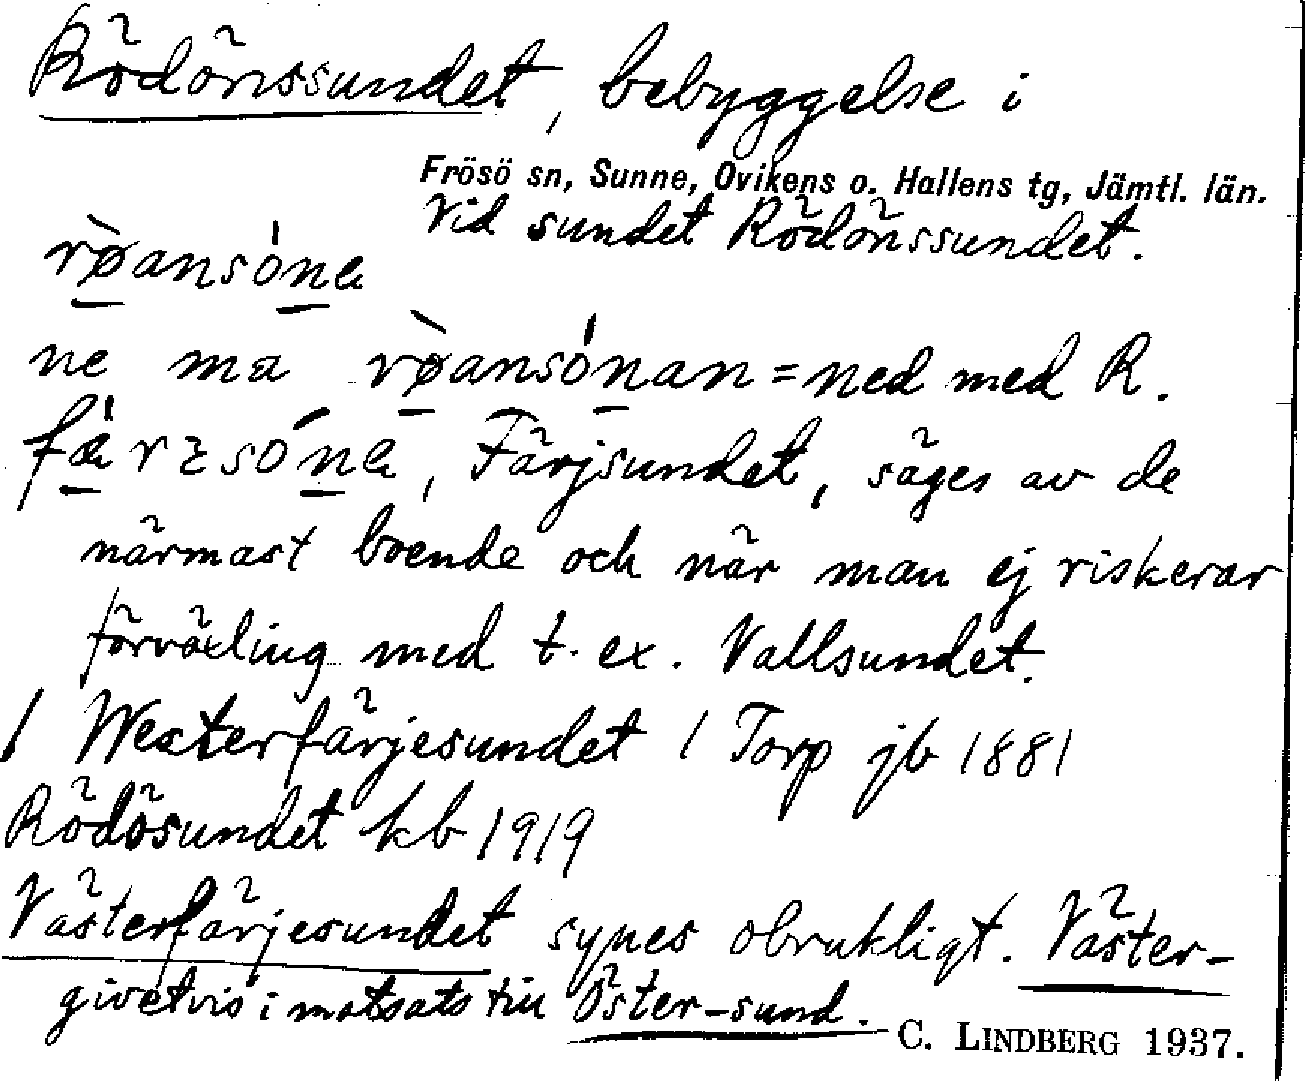 Rödönssundet, bebyggelse i
Frösö sn, Sunne, Ovikens o. Hallens tg, Jämtl. län.
Vid sundet Rödönssundet.
rø̀ansóna
ne ma rø̀ansónan = ned med R.
Färjsundet, säges av de
närmast boende och när man ej riskerar
förväxling med t. ex. Vallsundet.
/ Westerfärjesundet / Torp jb 1881
Rödösundet kb 1919
Västerfärjesundet synes obrukligt. Väster-
givetvis i motsats till Öster-sund.
C. LINDBERG 1937.